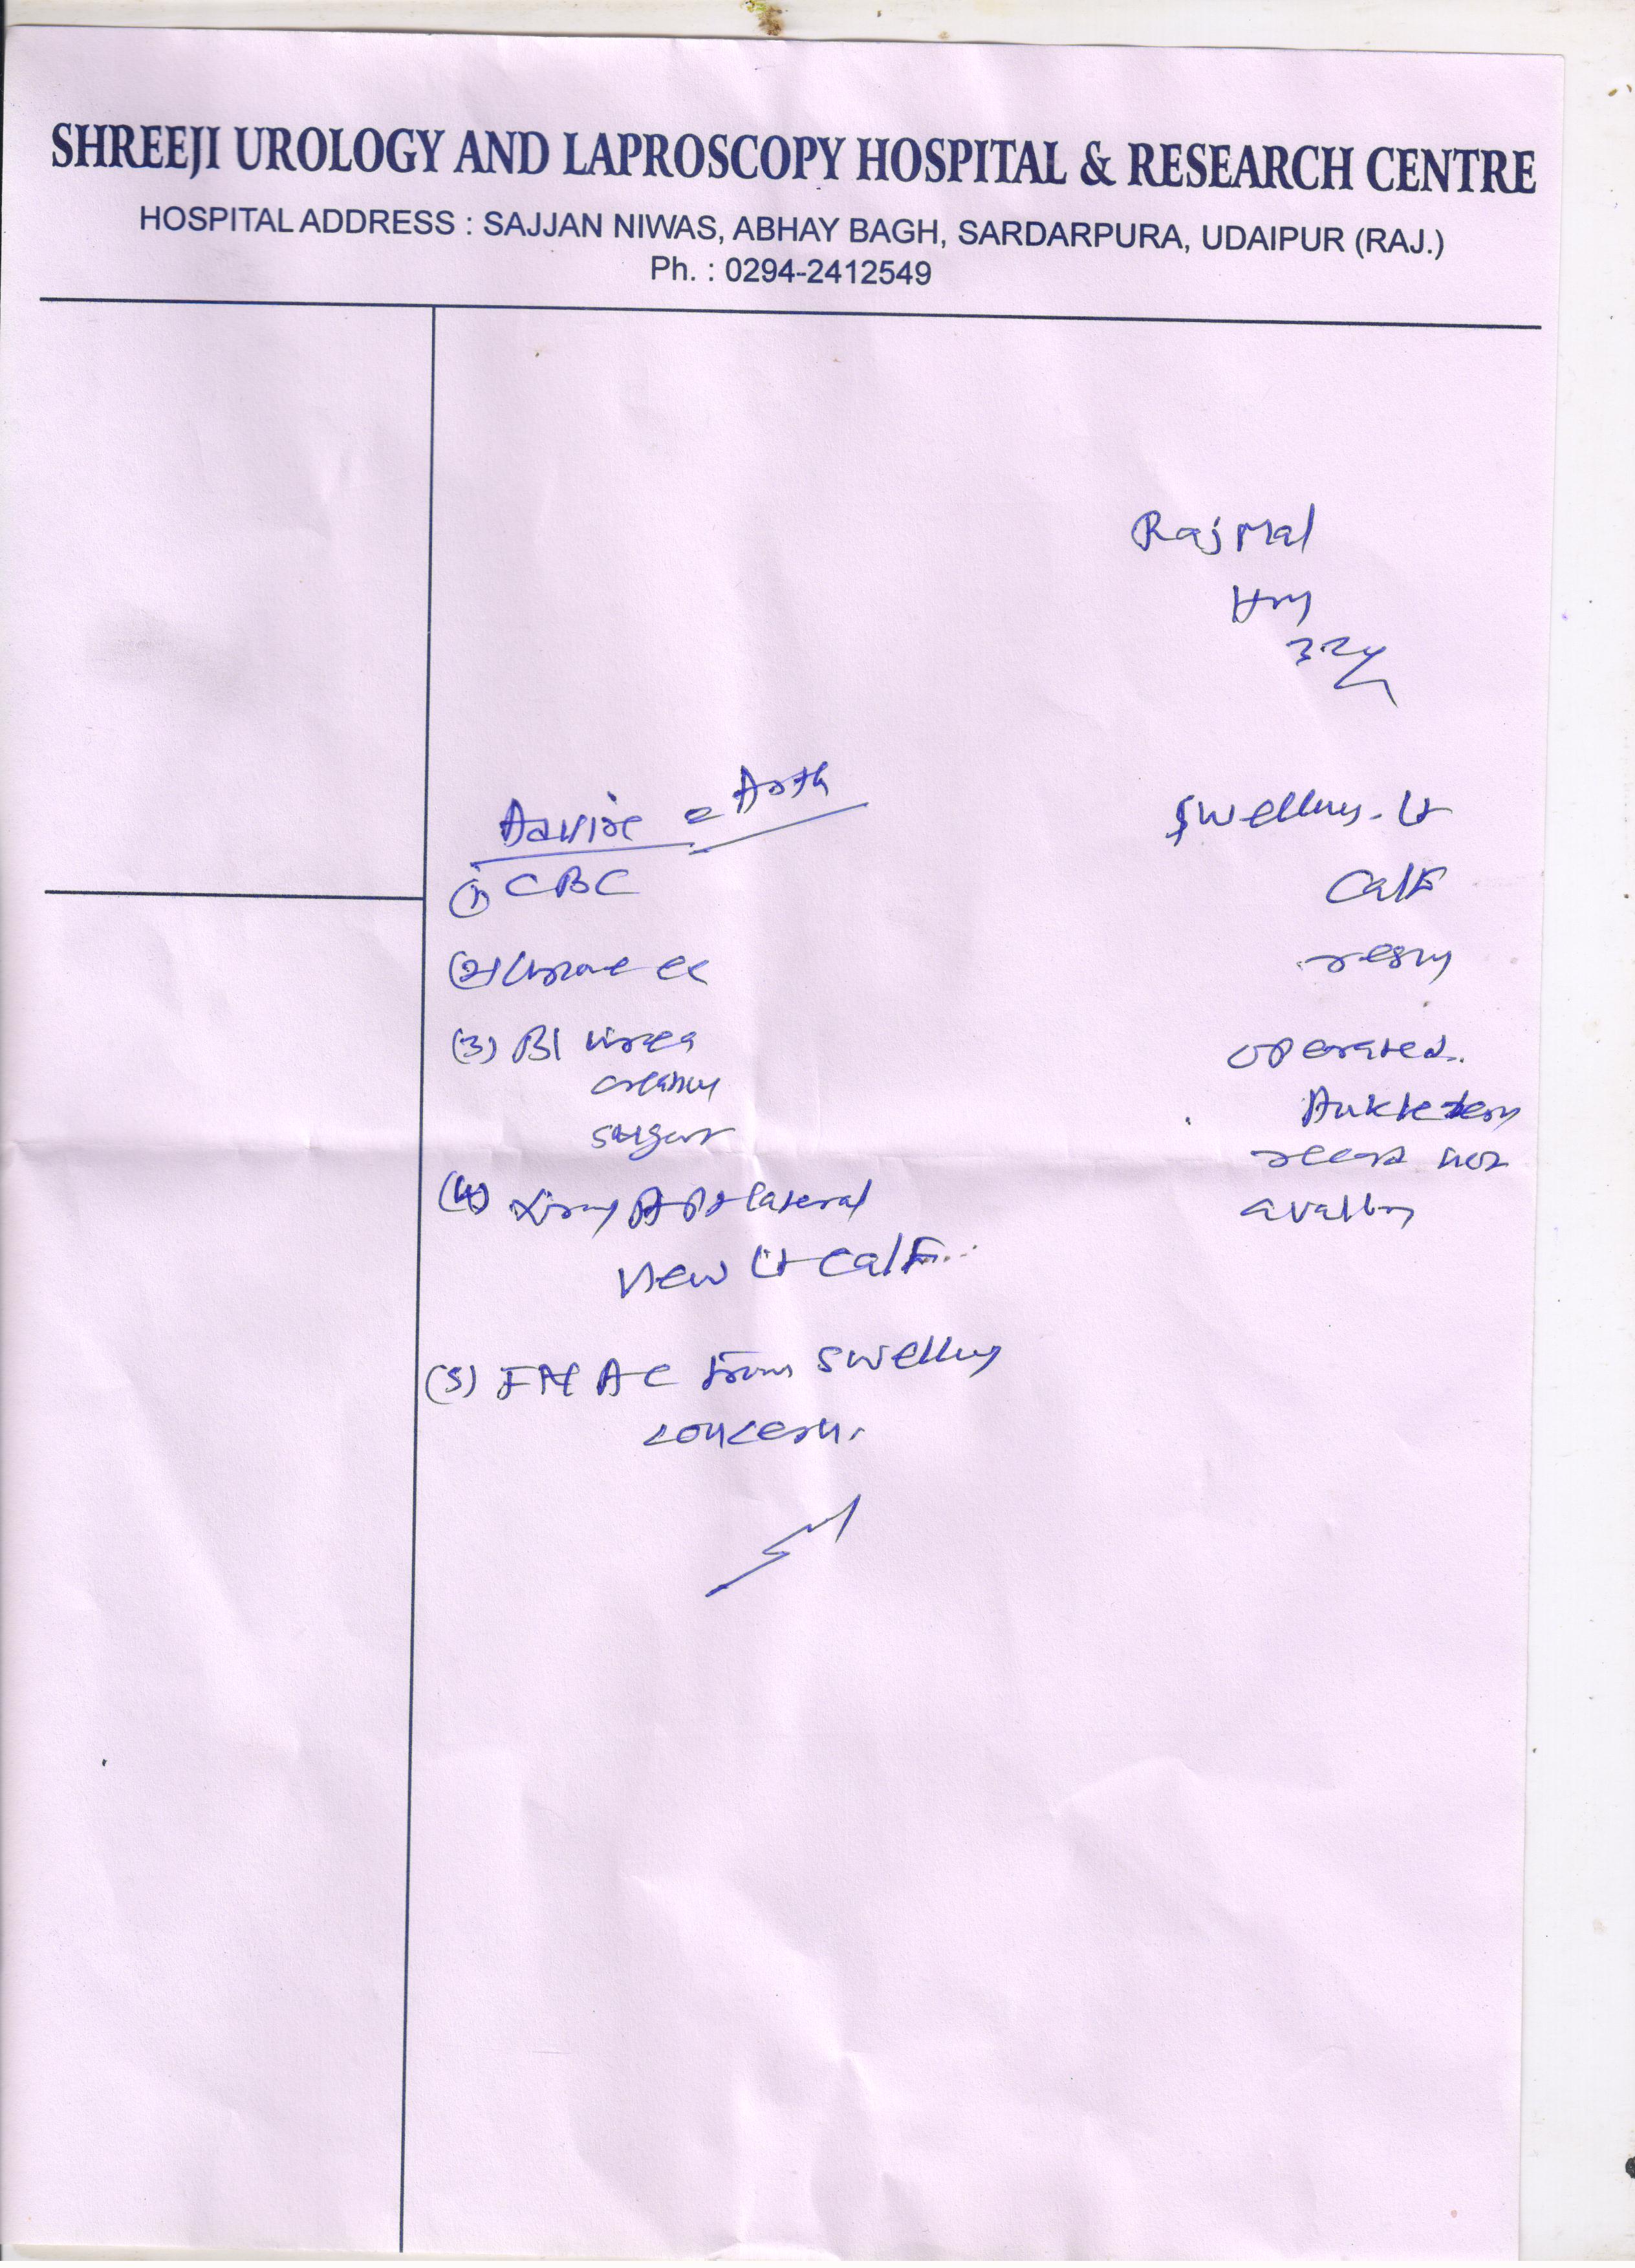 SHREEJI UROLOGY AND LAPROSCOPY HOSPITAL & RESEARCH CENTRE
HOSPITAL ADDRESS : SAJJAN NIWAS, ABHAY BAGH, SARDARPURA, UDAIPUR (RAJ.)
Ph. : 0294-2412549
Rajmal
32y
Advise =
(1) CBC
(2)
(3) Bl urea
sugar
(4) Xray AP & lateral
view Lt calf
(5) FNAC from swelling
concern.
Swelling. Lt
Calf
region
operated.
not